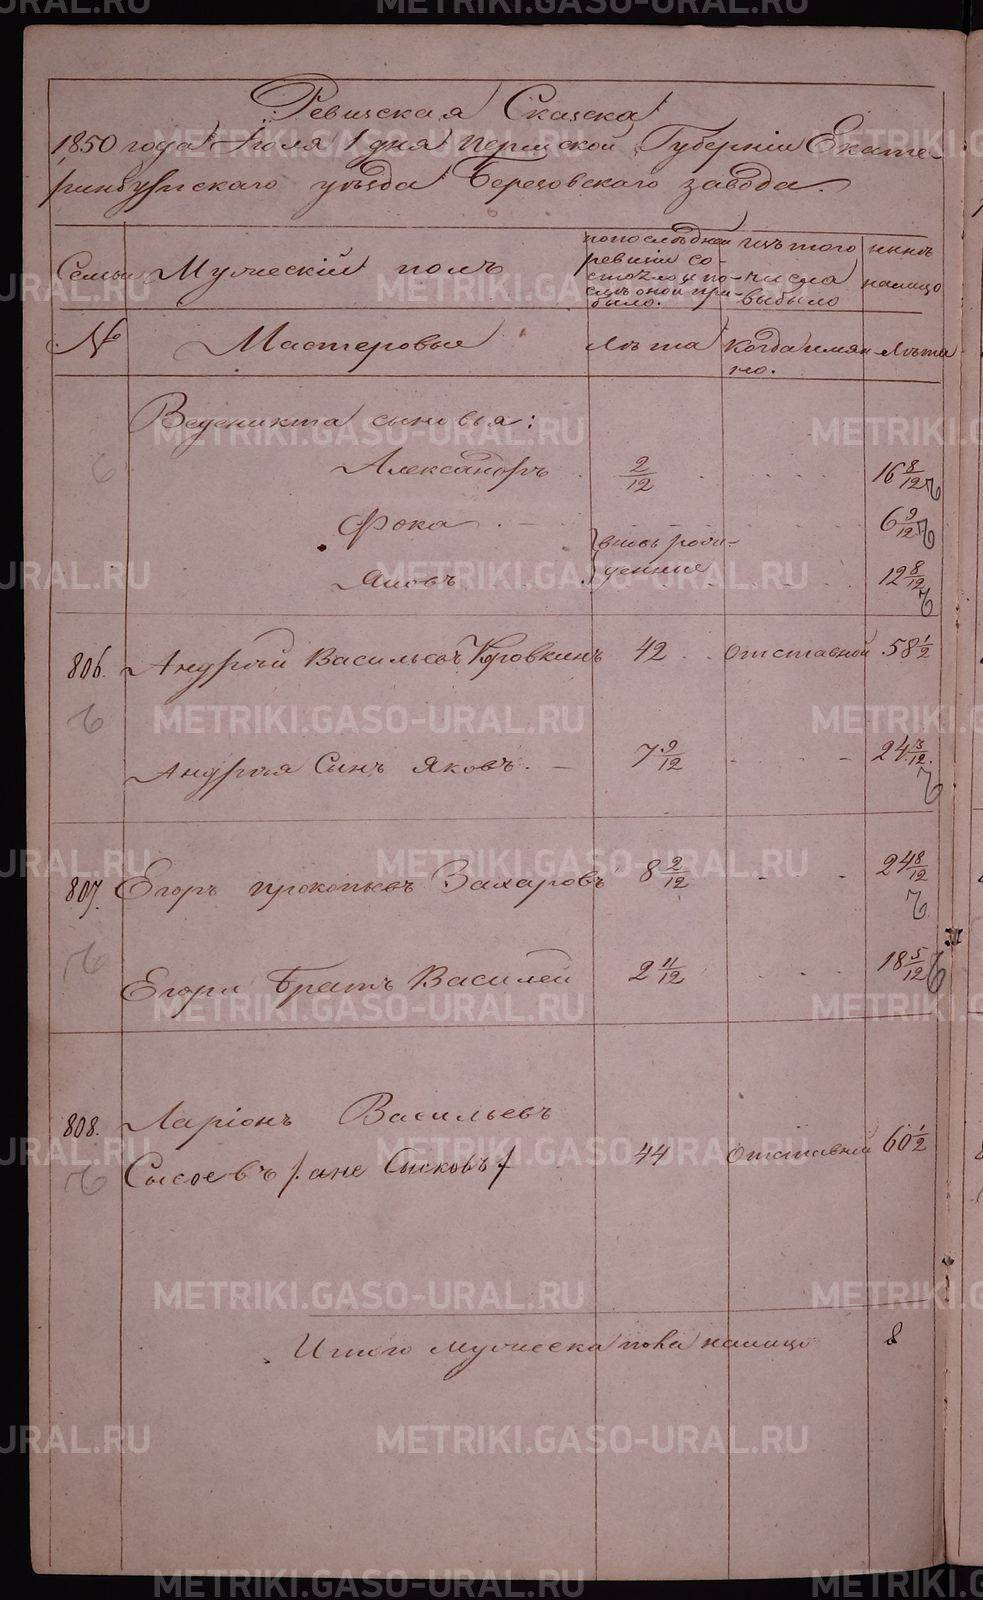 Ревижская Сказка
1850 года Июля 1 дня Пермской Губерніи Екате-
ринбургскаго уѣзда Березовскаго завода.
Семьи
Мужескій полъ
по последней
ревизіи со-
стояло и по-
слѣ оной при-
было.
изъ того
числа
выбыло
нынѣ
налицо
№
Мастеровые
Лѣта
Когда имян
но.
Лѣта
Венедикта сыновья:
Александръ 2/12 16 8/12
Фока 6 9/12
вновь рож-
денные
Яковъ 12 8/12
806. Андрей Васильевъ Коровкинъ 42 отставной 58 1/2
Андрея Сынъ Яковъ. 7 9/12 24 3/12
807. Егоръ Прокопьевъ Захаровъ 8 2/12 24 8/12
Егора Братъ Василей 2 11/12 18 5/12
808. Ларіонъ Васильевъ
Сысоевъ /: ане Сысковъ :/ 44 отставной 60 1/2
Итого мужеска пола налицо 8
METRIKI.GASO-URAL.RU